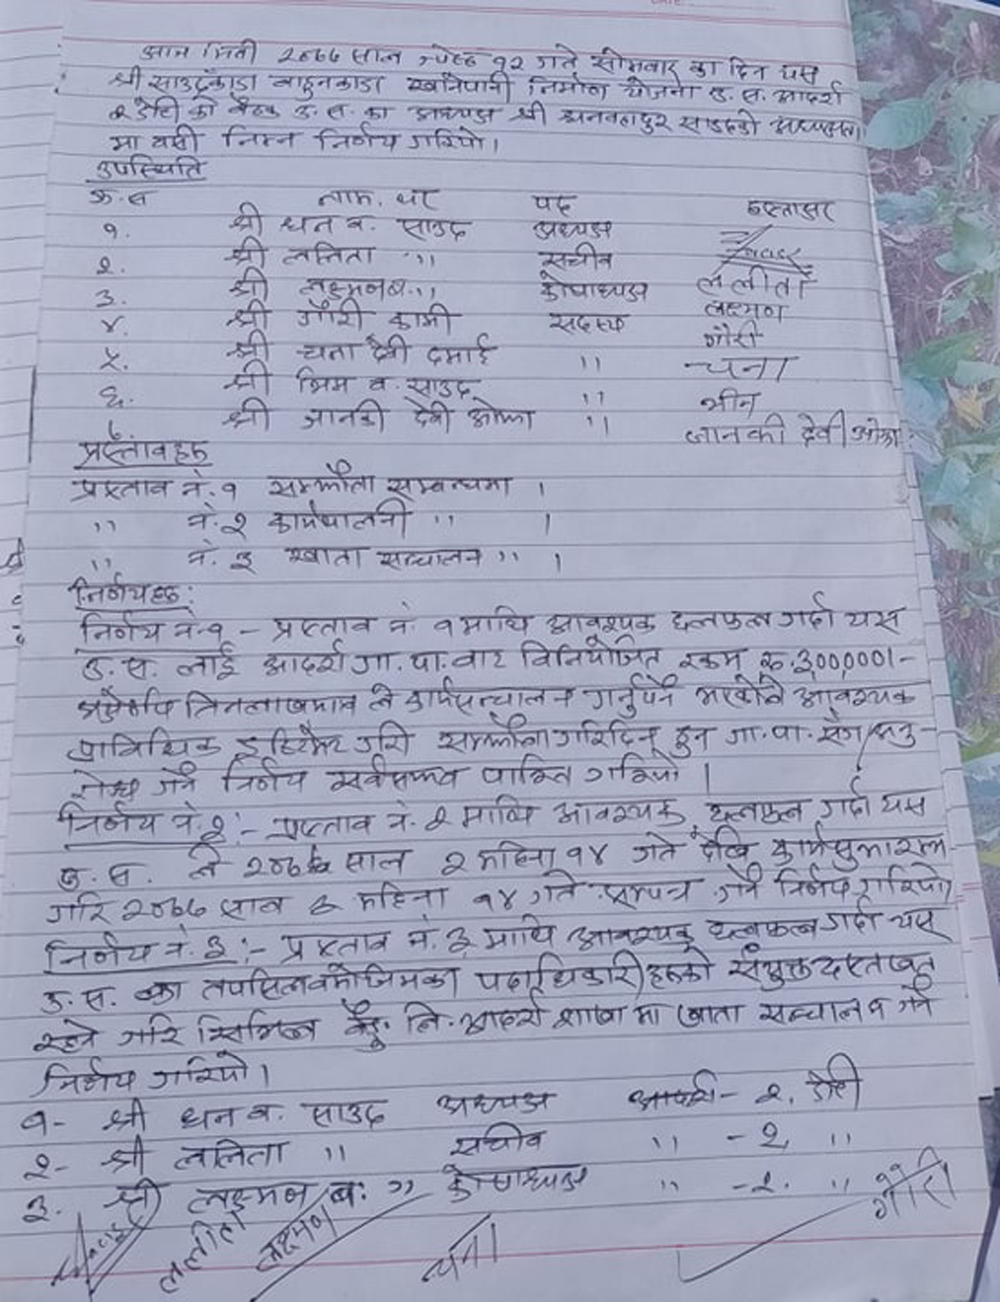 आज मिती २०७७ साल जेष्ठ १२ गते सोमवार का दिन यस
श्री साउदकाडा बाहुनकाडा खानेपानी निर्माण योजना उ. स. आदर्श
२ डोटी को बैठक उ. स. का अध्यक्ष श्री धनबहादुर साउदको अध्यक्षता
मा बसी निम्न निर्णय गरियो।
उपस्थिति
क्र. स नाम. थर पद हस्ताक्षर
१. श्री धन ब. साउद अध्यक्ष
२. श्री ललिता ,, सचीव ललीता
३. श्री लक्ष्मण ब. ,, कोषाध्यक्ष लक्ष्मण
४. श्री गौरी कामी सदस्य गौरी
५. श्री चना देवी दमाई ,, चना
६. श्री भिम ब. साउद ,, भीम
श्री जानकी देवी ओझा ,, जानकी देवी ओझा
प्रस्तावहरु
प्रस्ताव नं. १ सम्झौता सम्बन्धमा ।
,, नं. २ कार्यपालनी ,, ।
,, नं. ३ खाता सञ्चालन ,, ।
निर्णयहरु:
निर्णय नं. १ - प्रस्ताव नं. १ माथि आवश्यक छलफल गर्दा यस
उ. स. लाई आदर्श गा. पा. बाट विनियोजित रकम रु. ३०००००।-
तिनलाख मात्र ले कार्यसन्चालन गर्नुपर्ने भएकोले आवश्यक
प्राविधिक इष्टिमेट गरी सम्झौता गरिदिन हुन गा. पा. सँग अनु-
रोध गर्ने निर्णय सर्वसम्मत पारित गरियो ।
निर्णय नं. २:- प्रस्ताव नं. २ माथि आवश्यक छलफल गर्दा यस
उ. स. ले साल २ महिना १४ गते देखि कार्यसुभारम्भ
गरि २०७७ साल महिना १४ गते सम्पन्न गर्ने निर्णय गरियो।
निर्णय नं. ३:- प्रस्ताव नं. ३ माथि आवश्यक छलफल गर्दा यस
उ. स. का तपसिल बमोजिमका पदाधिकारीहरुको संयुक्त दस्तखत
रहने गरि बैं. लि. आदर्श शाखा मा खाता सन्चालन गर्ने
निर्णय गरियो।
१- श्री धन ब. साउद अध्यक्ष आदर्श - २. डोटी
२- श्री ललिता ,, सचीव ,, - २ ,,
३. श्री लक्ष्मण ब. ,, कोषाध्यक्ष ,, - २. ,,
ललीता लक्ष्मण चना गौरी